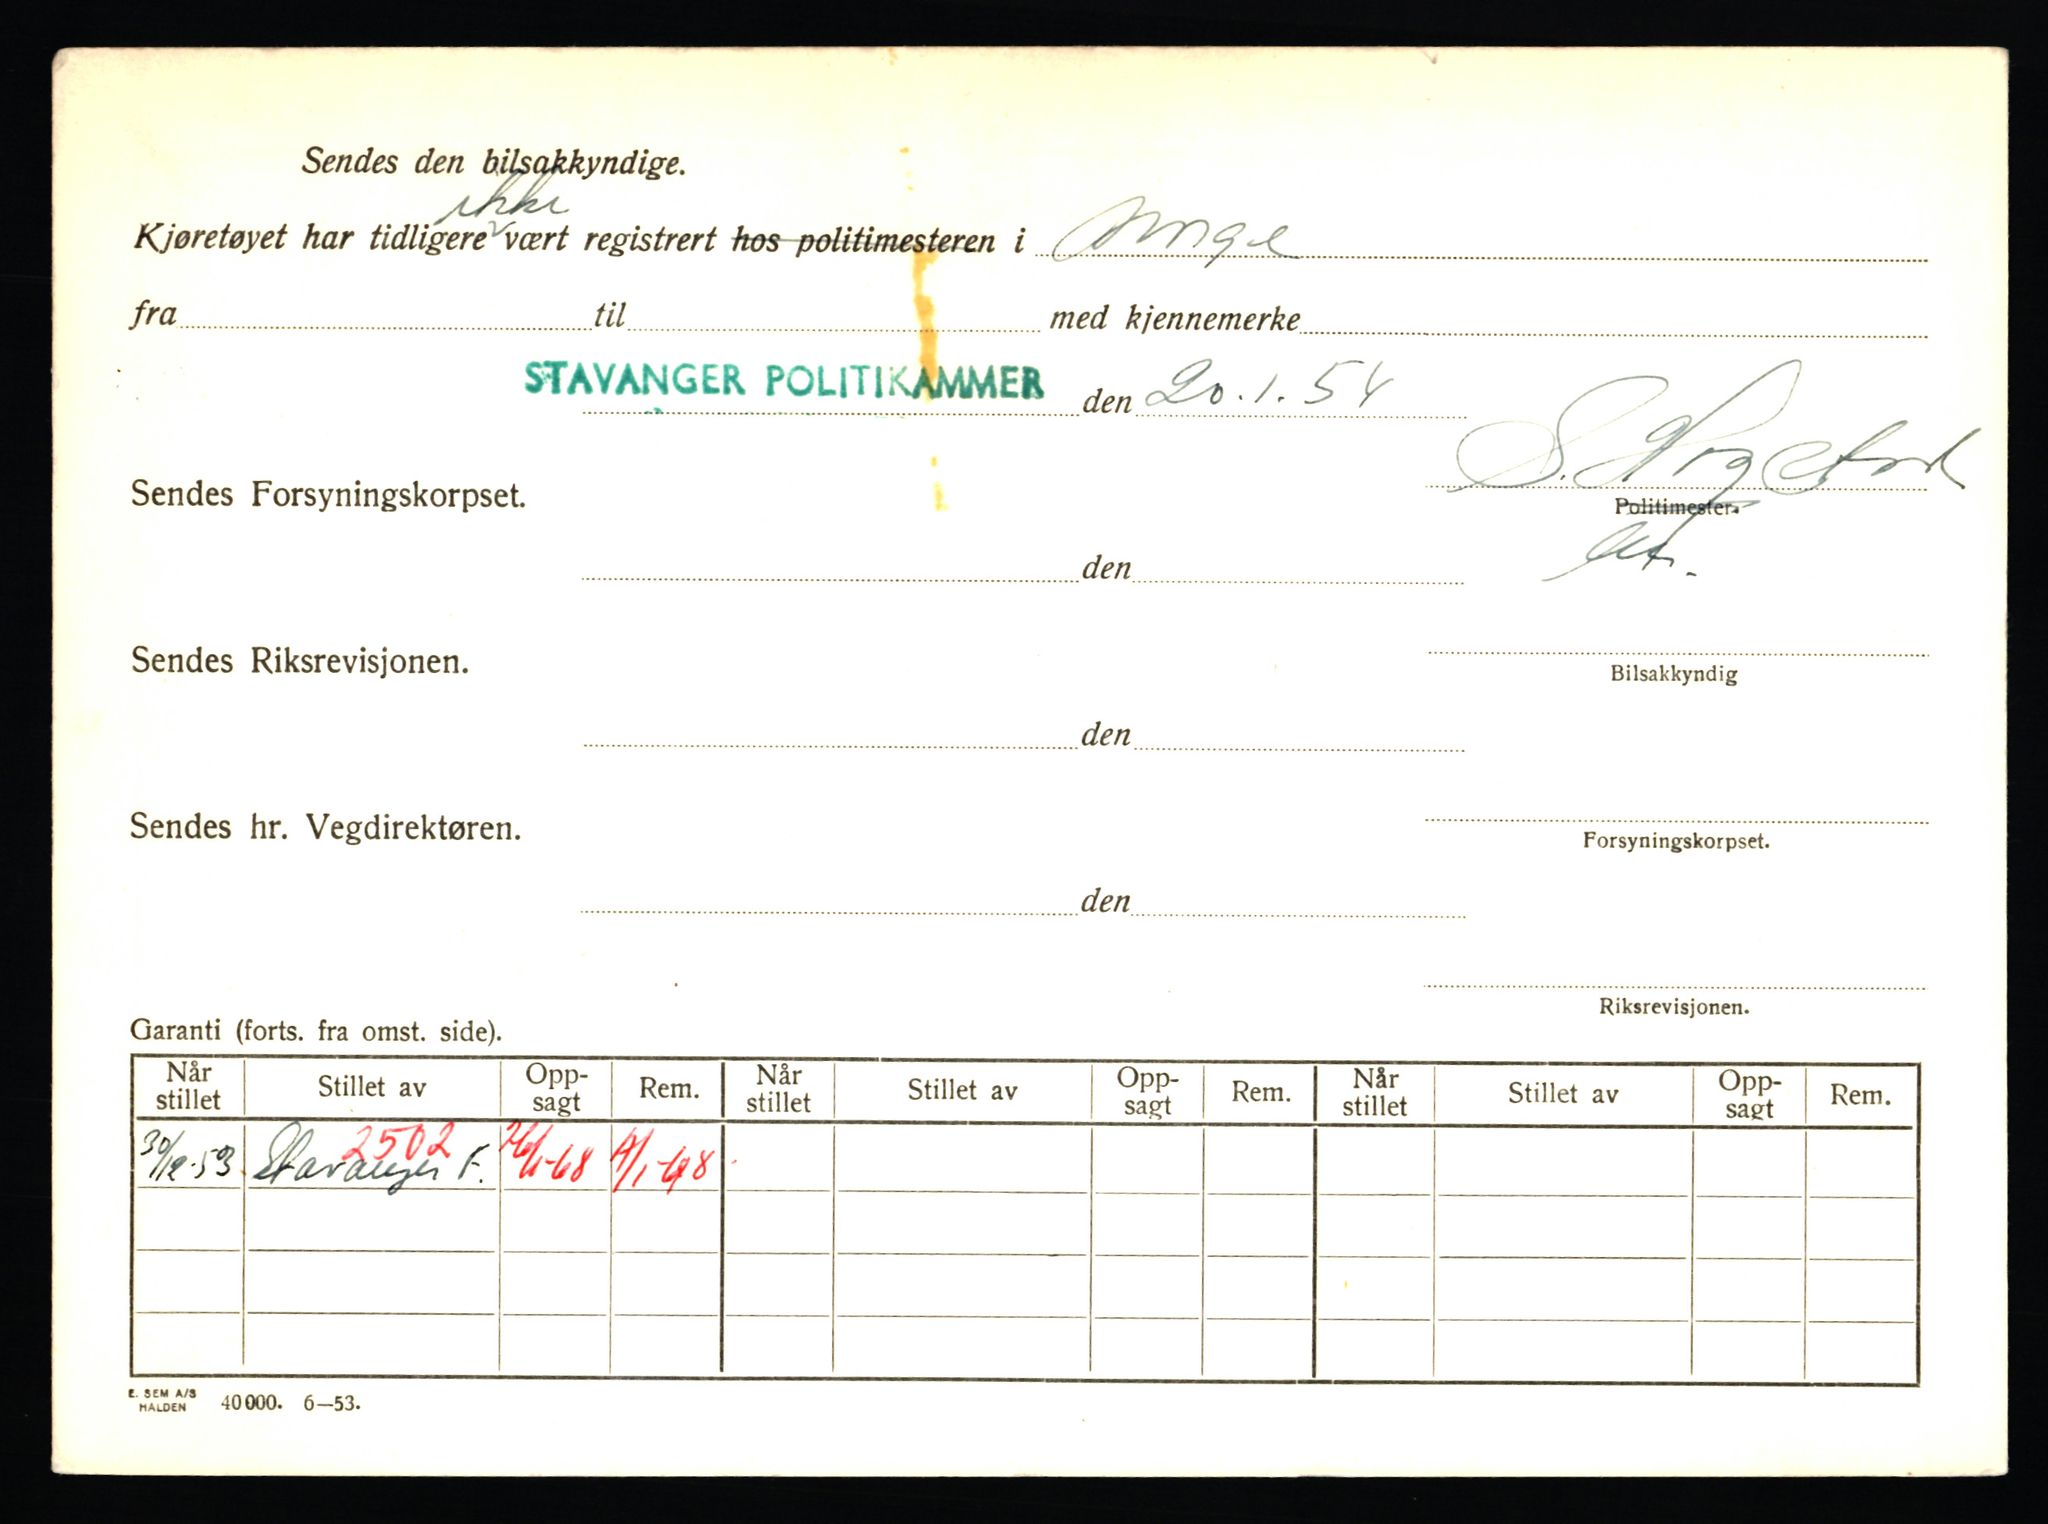 Sendes den bilsakkyndige.
ikke
Kjøretøyet har tidligere vært registrert hos politimesteren i Norge
fra til med kjennemerke
STAVANGER POLITIKAMMER den 20.1.54
Sendes Forsyningskorpset.
Politimester.
den
Sendes Riksrevisjonen.
Bilsakkyndig
den
Sendes hr. Vegdirektøren.
Forsyningskorpset.
den
Riksrevisjonen.
Garanti (forts. fra omst. side).
Når stillet Stillet av Opp-sagt Rem. Når stillet Stillet av Opp-sagt Rem. Når stillet Stillet av Opp-sagt Rem.
2502
30/12-53 Stavanger F. 26/1-68
E. SEM A/S
HALDEN 40000. 6—53.